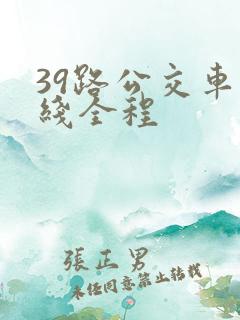 39路公交車
綫全程
張正男
未经同意禁止转载